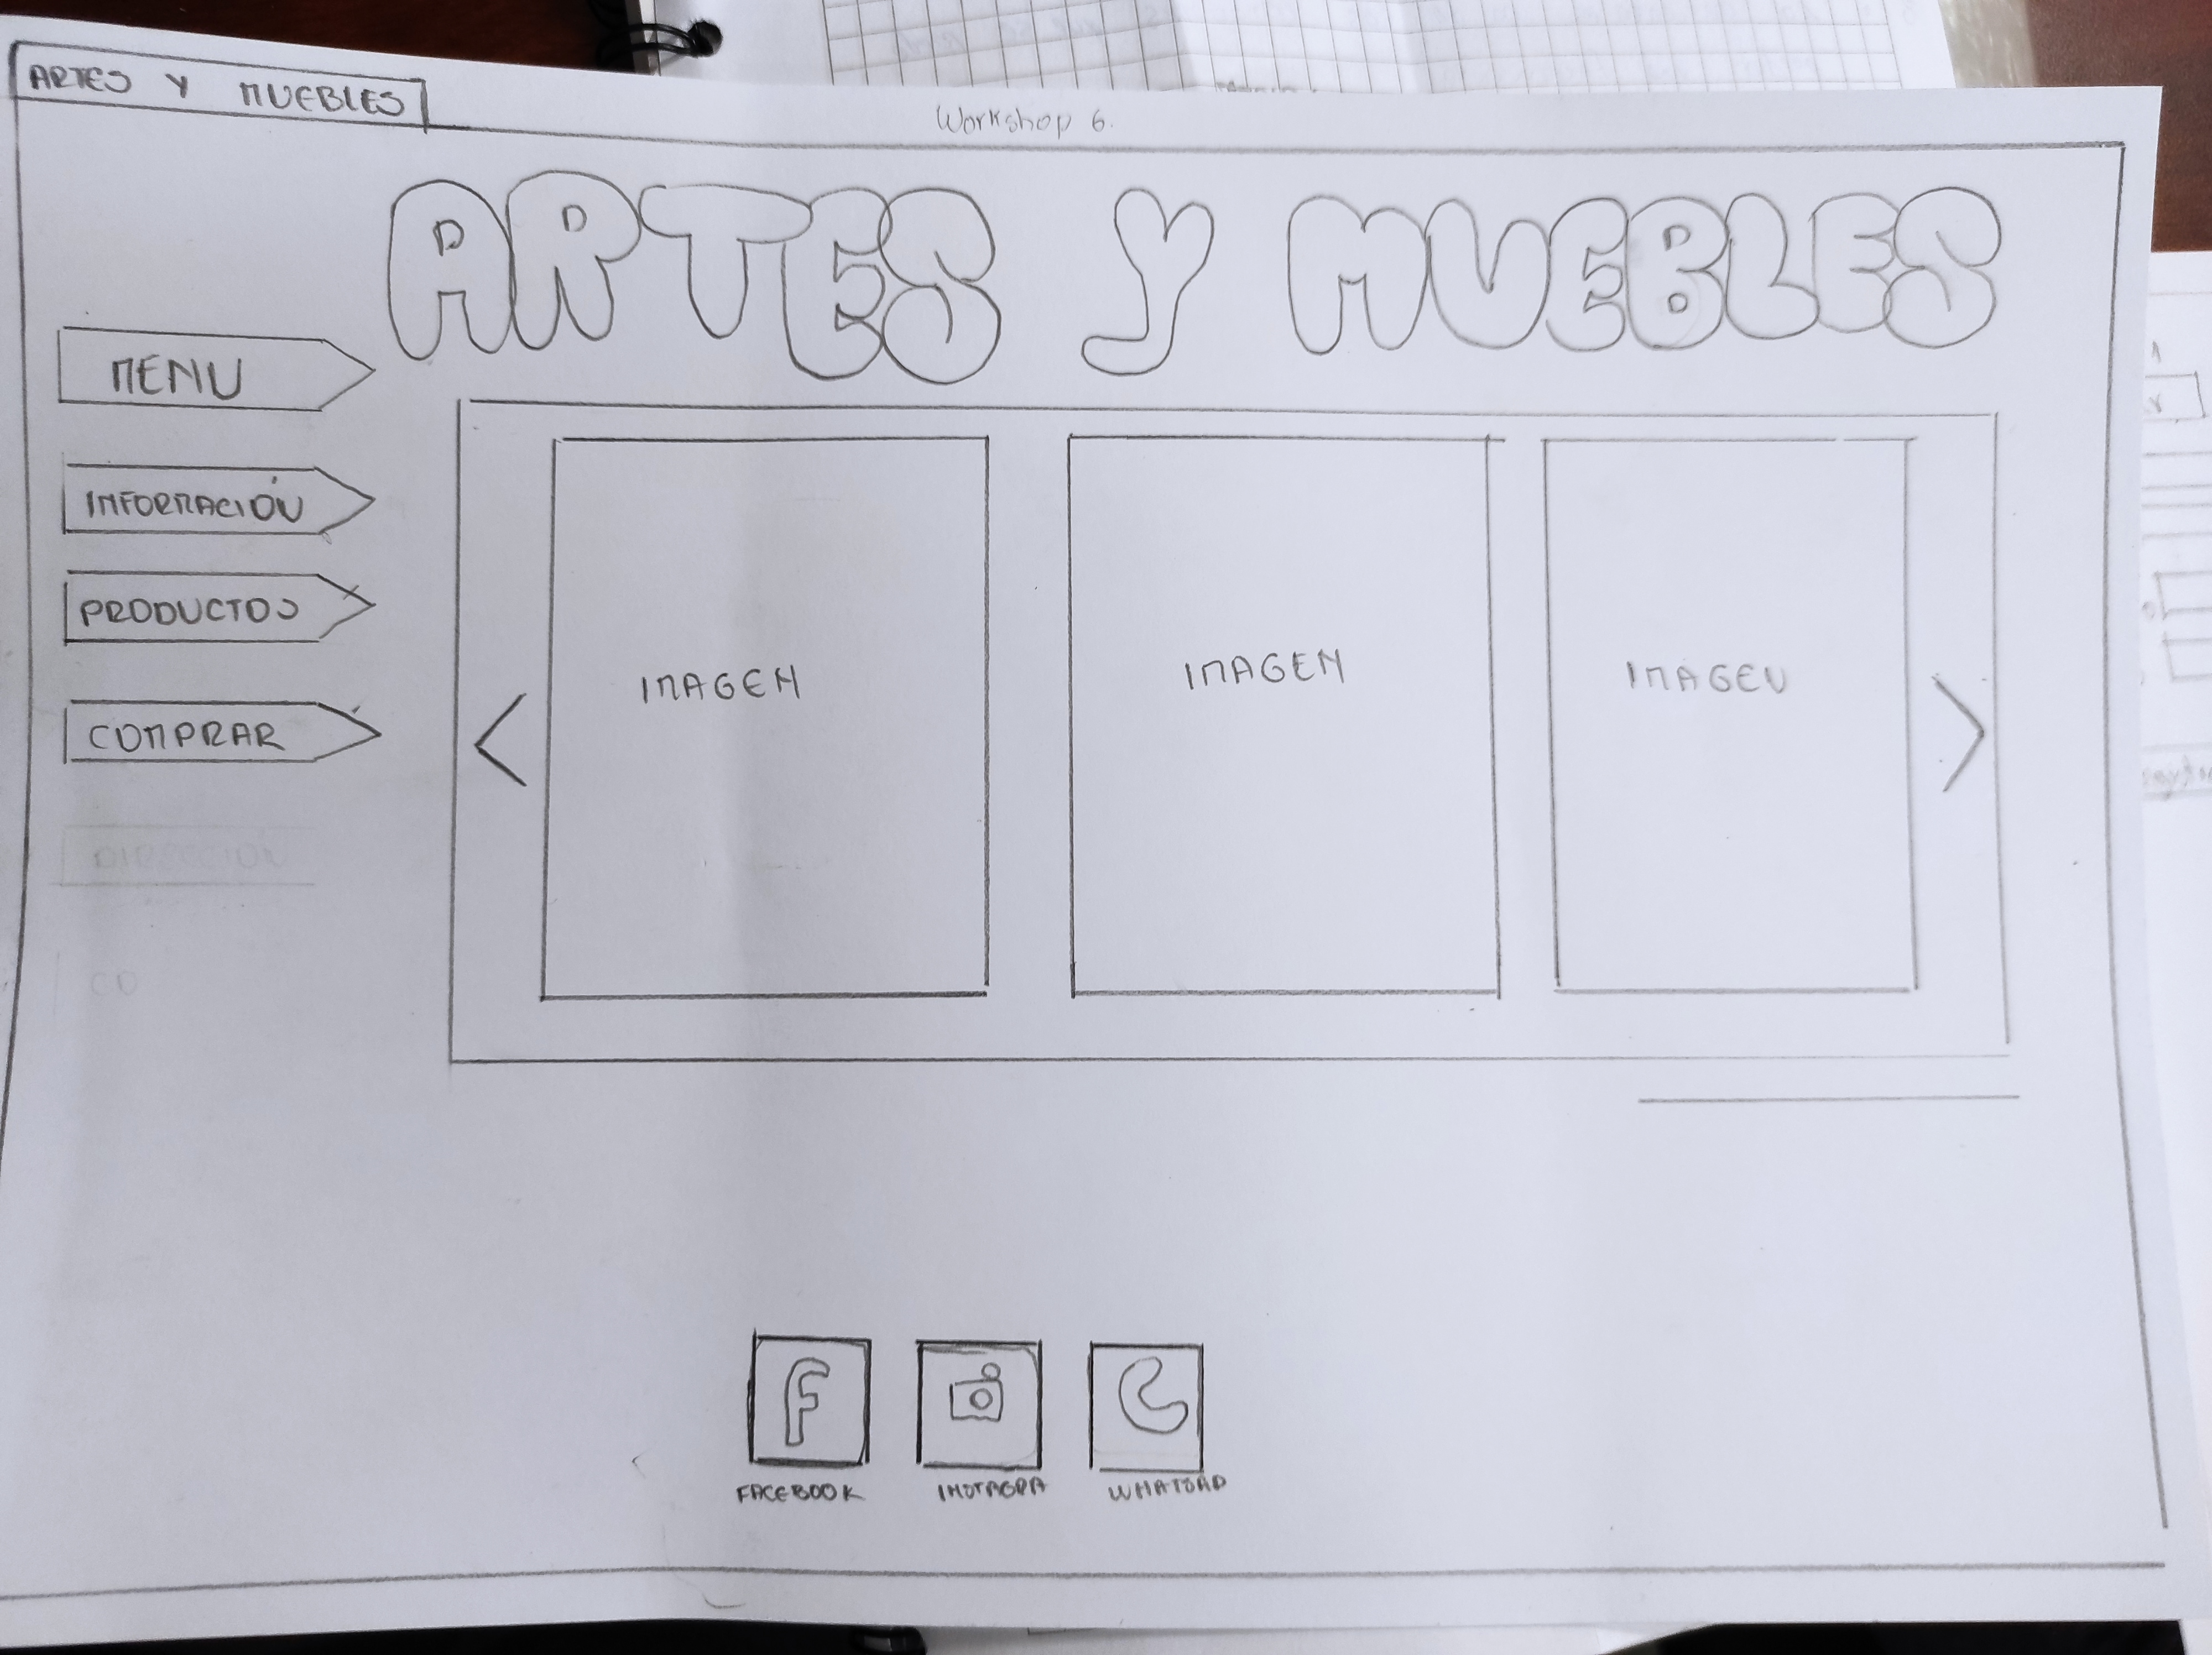 ARTES Y MUEBLES
Workshop 6.
ARTES Y MUEBLES
MENU
INFORMACIÓN
PRODUCTOS
COMPRAR
DIRECCION
CO
IMAGEN
IMAGEN
IMAGEN
<
>
F
FACEBOOK
INSTAGRA
WHATSAP